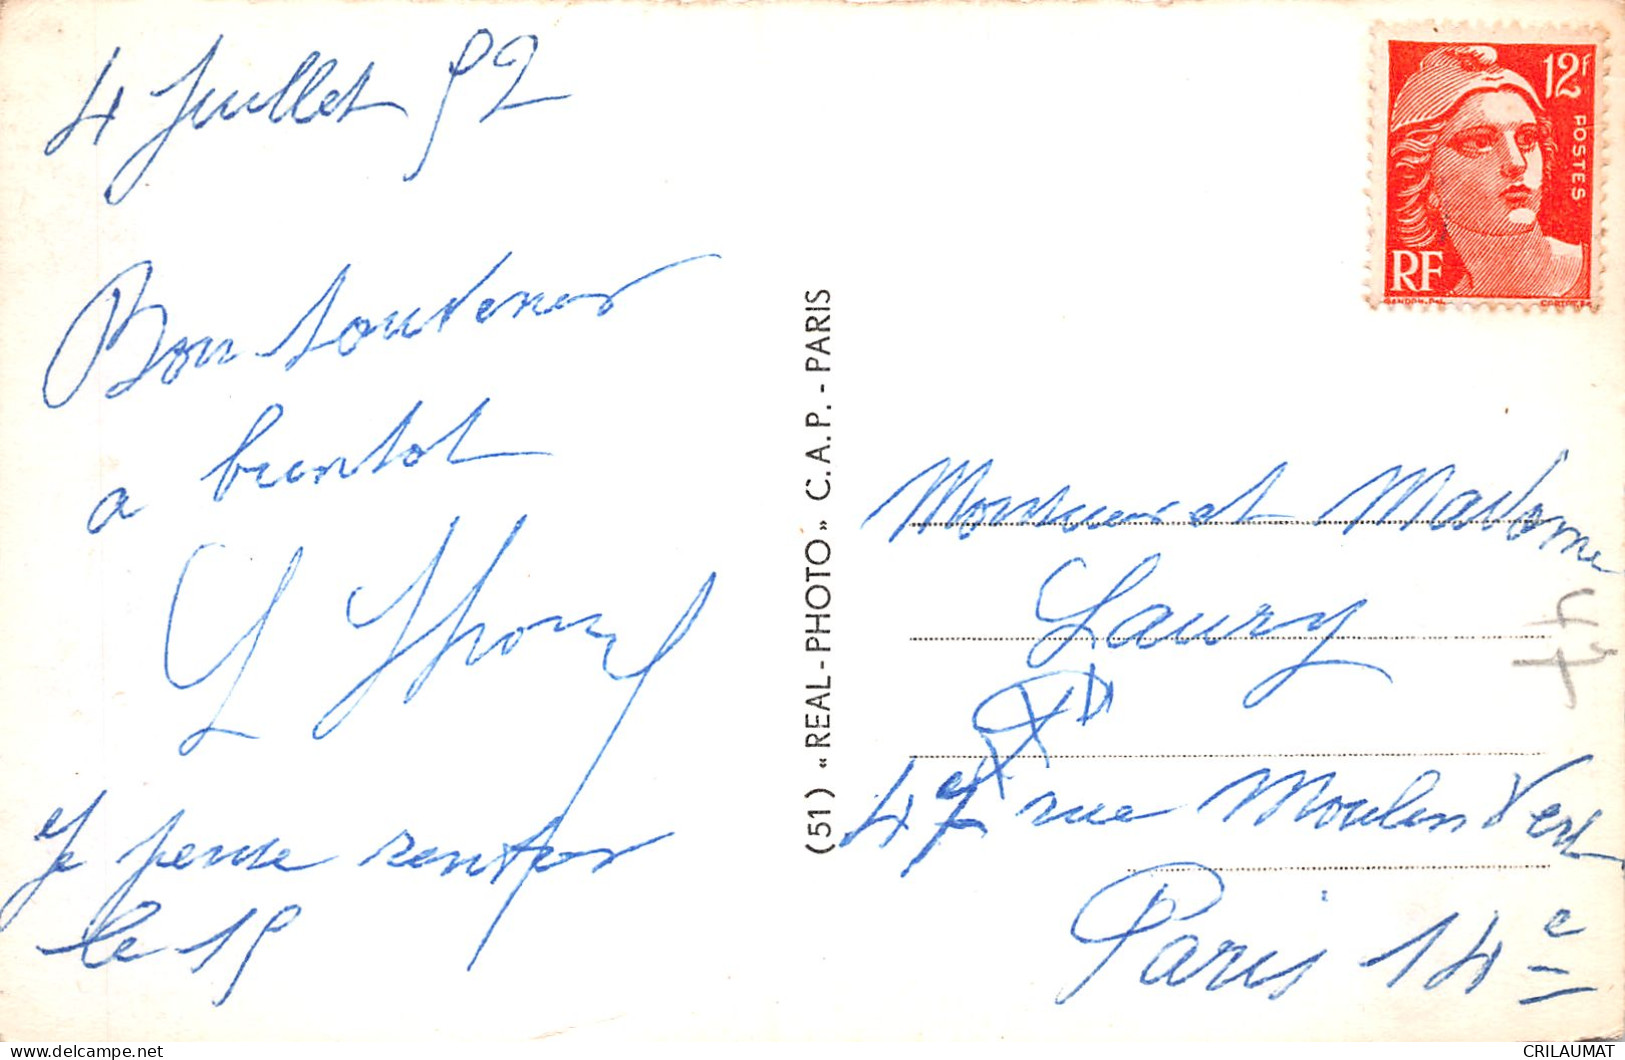 4 Juillet 52
Bon souvenir
a bientot
Je pense rentrer
le 15
(51) « REAL - PHOTO » C.A.P. - PARIS
12F
POSTES
RF
Monsieur et Madame
Laury
47 rue Moulin Vert
Paris 14e
47
CRILAUMAT